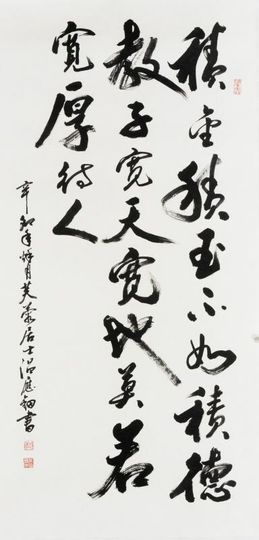 積金積玉不如積德
教子寬天寬地莫若
寬厚待人
辛卯年 月芙蓉居士沼應鈿書